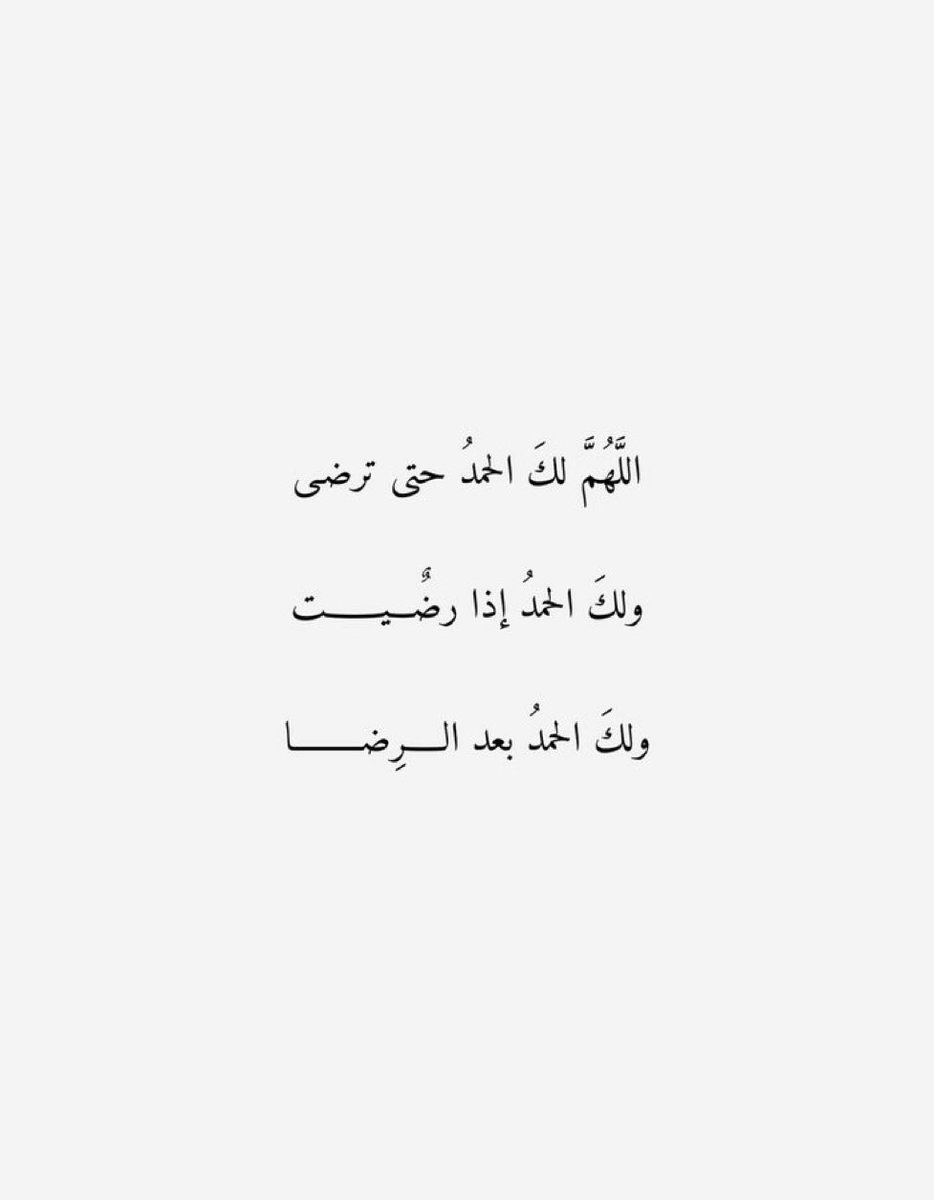 اللَّهُمَّ لكَ الحمدُ حتى ترضى
ولكَ الحمدُ إذا رضٌيـــــت
ولكَ الحمدُ بعد الـــرِضـــــا